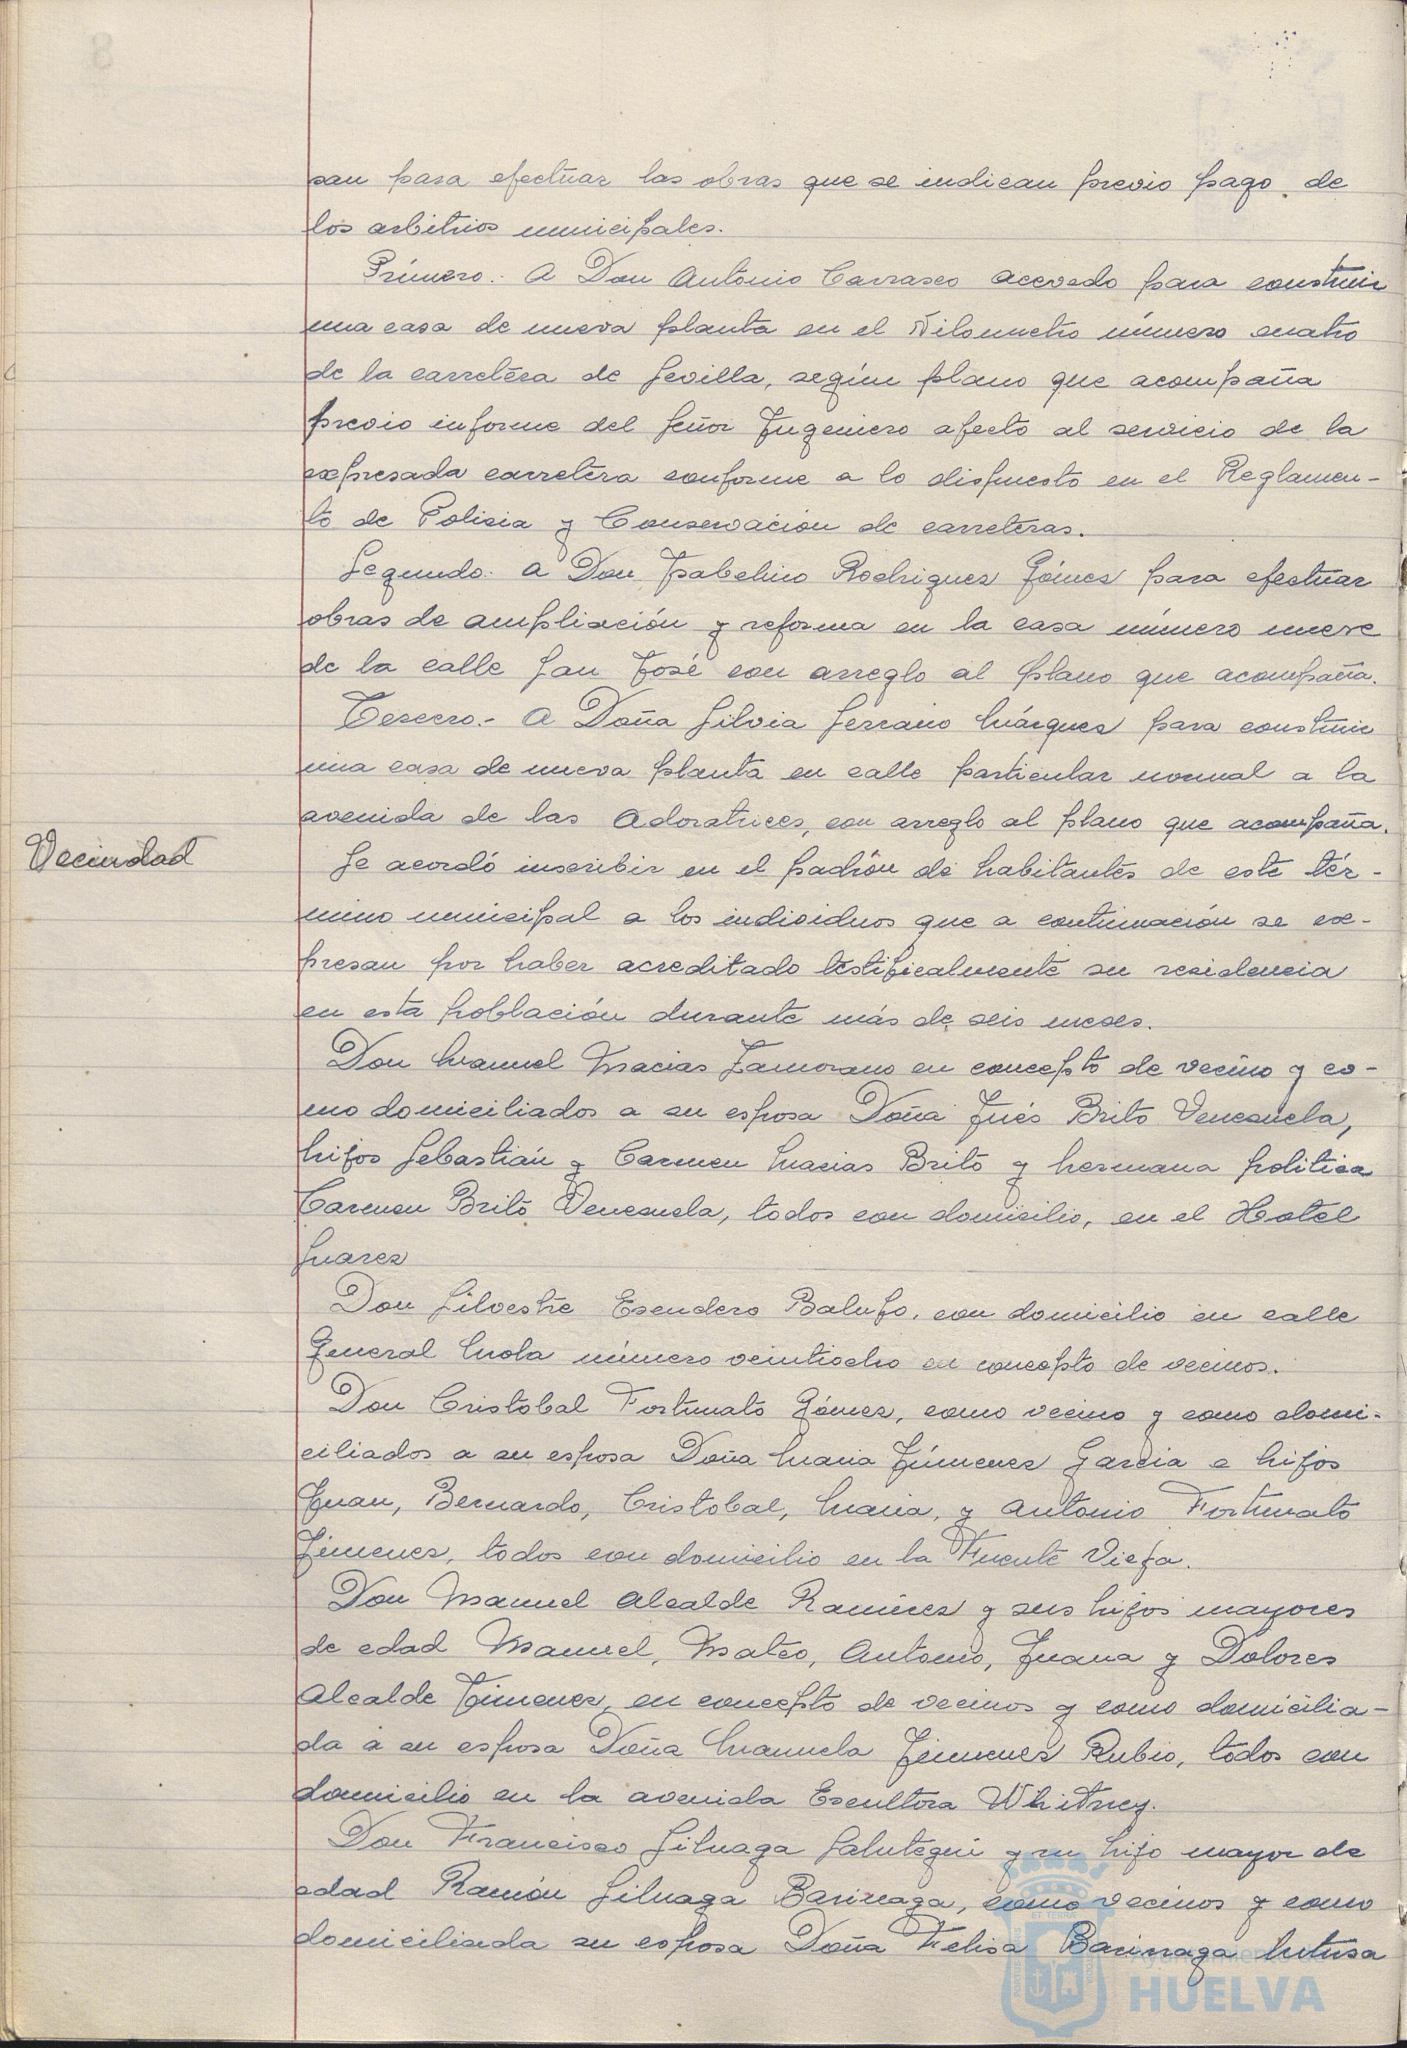 san para efectuar las obras que se indican previo pago de
los arbitrios municipales.
Primero.- A Don Antonio Carrasco Acevedo para construir
una casa de nueva planta en el Kilometro número cuatro
de la carretera de Sevilla, según plano que acompaña
previo informe del Señor Ingeniero afecto al servicio de la
expresada carretera conforme a lo dispuesto en el Reglamen-
to de Policia y Conservación de carreteras.
Segundo.- A Don Isabelino Rodriguez Gómez para efectuar
obras de ampliación y reforma en la casa número nueve
de la calle San José con arreglo al plano que acompaña.
Tercero.- A Doña Silvia Serrano Márquez para construir
una casa de nueva planta en calle particular normal a la
avenida de las Adoratrices, con arreglo al plano que acompaña.
Vecindad
Se acordó inscribir en el padrón de habitantes de este tér-
mino municipal a los individuos que a continuación se ex-
presan por haber acreditado testificalmente su residencia
en esta población durante más de seis meses.
Don Manuel Macias Zamorano en concepto de vecino y co-
mo domiciliados a su esposa Doña Inés Brito Venezuela,
hijos Sebastián y Carmen Macias Brito y hermana politica
Carmen Brito Venezuela, todos con domicilio, en el Hotel
Suarez
Don Silvestre Escudero Balufo, con domicilio en calle
General Mola número veintiocho en concepto de vecinos.
Don Cristobal Fortunato Gómez, como vecino y como domi-
ciliados a su esposa Doña Maria Jimenez Garcia e hijos
Juan, Bernardo, Cristobal, Maria, y Antonio Fortunato
Jimenez, todos con domicilio en la Fuente Vieja.
Don Manuel Alcalde Ramirez y sus hijos mayores
de edad Manuel, Mateo, Antonio, Juana y Dolores
Alcalde Jimenez, en concepto de vecinos y como domicilia-
da a su esposa Doña Manuela Jimenez Rubio, todos con
domicilio en la avenida Escultora Whitney.
Don Francisco Siluaga Salutegui y su hijo mayor de
edad Ramón Siluaga Barinaga, como vecinos y como
domiciliada su esposa Doña Felisa Barinaga
Ayuntamiento de
HUELVA